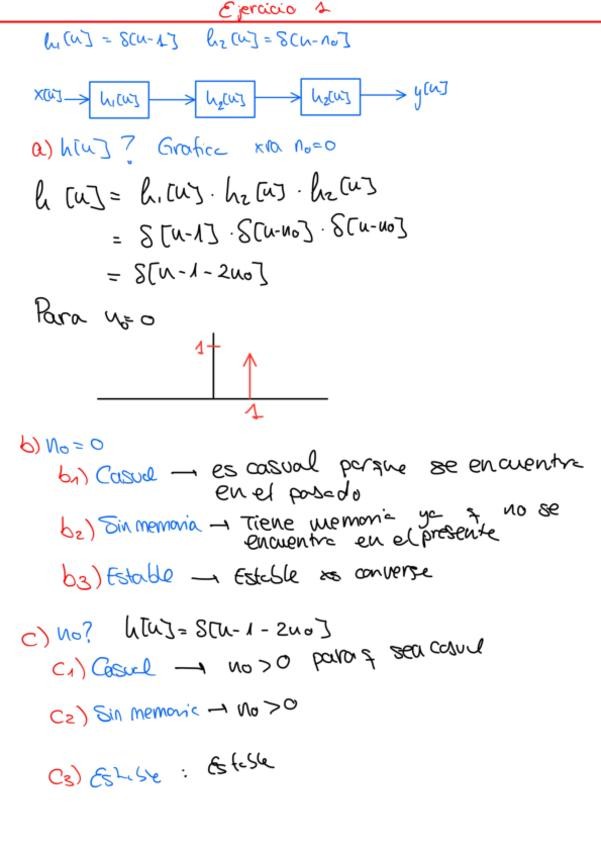 Ejercicio 1
h₁[n] = δ[n-1] h₂[n] = δ[n-n₀]
x[n] → h₁[n] → h₂[n] → h₂[n] → y[n]
a) h[n]? Grafica xra n₀=0
h[n] = h₁[n] · h₂[n] · h₂[n]
= δ[n-1] · δ[n-n₀] · δ[n-n₀]
= δ[n-1-2n₀]
Para n₀=0
1
1
b) n₀=0
b₁) Casual → es casual porque se encuentra
en el pasado
b₂) Sin memoria → Tiene memoria ya q no se
encuentra en el presente
b3) Estable → Estable converse
c) n₀? h[n] = δ[n-1-2n₀]
C1) Casual → n₀>0 para q sea casual
C2) Sin memoria → n₀>0
C3) Estable : Estable